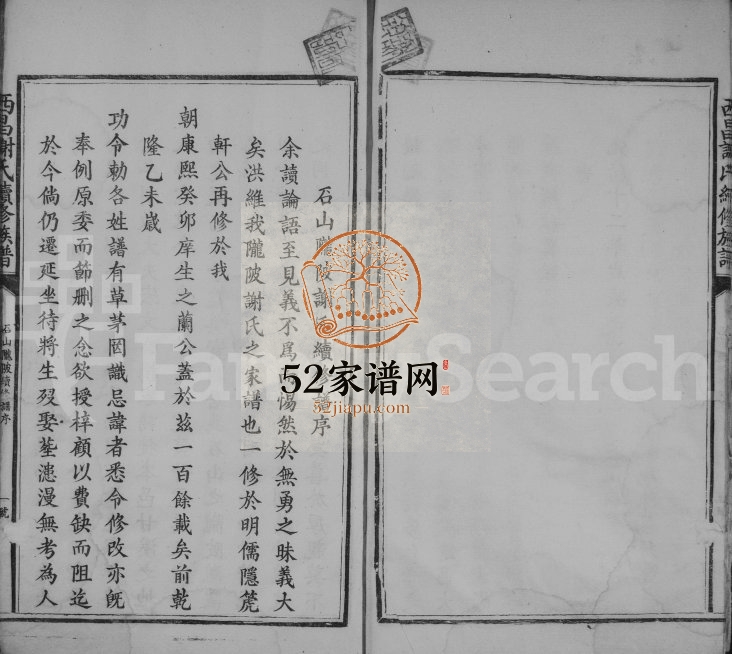 石山隴陂謝 續 譜序
余讀論語至見義不為 惕然於無勇之昧義大
矣洪維我隴陂謝氏之家譜也一修於明儒隱箎
軒公再修於我
朝康熙癸卯庠生之蘭公蓋於茲一百餘載矣前乾
隆乙未嵗
功令勅各姓譜有草茅罔識忌諱者悉令修改亦旣
奉例原委而節刪之念欲授梓顧以費缺而阻迄
於今倘仍遷延坐待將生殁娶塟漶漫無考為人
西昌謝氏續修族譜
石山隴陂續修譜序
一號
西昌謝氏續修族譜
52家谱网
52jiapu.com
FamilySearch